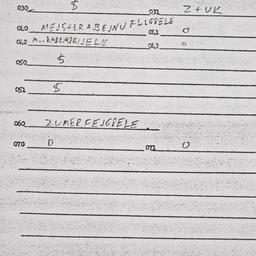 030 $ 031 Z+UK
040 MEJSTERABEJNU FLIGGELE 041 0
042 043 0
050 $
051 $
060 ZUMERFEJGELE.
070 0 071 0